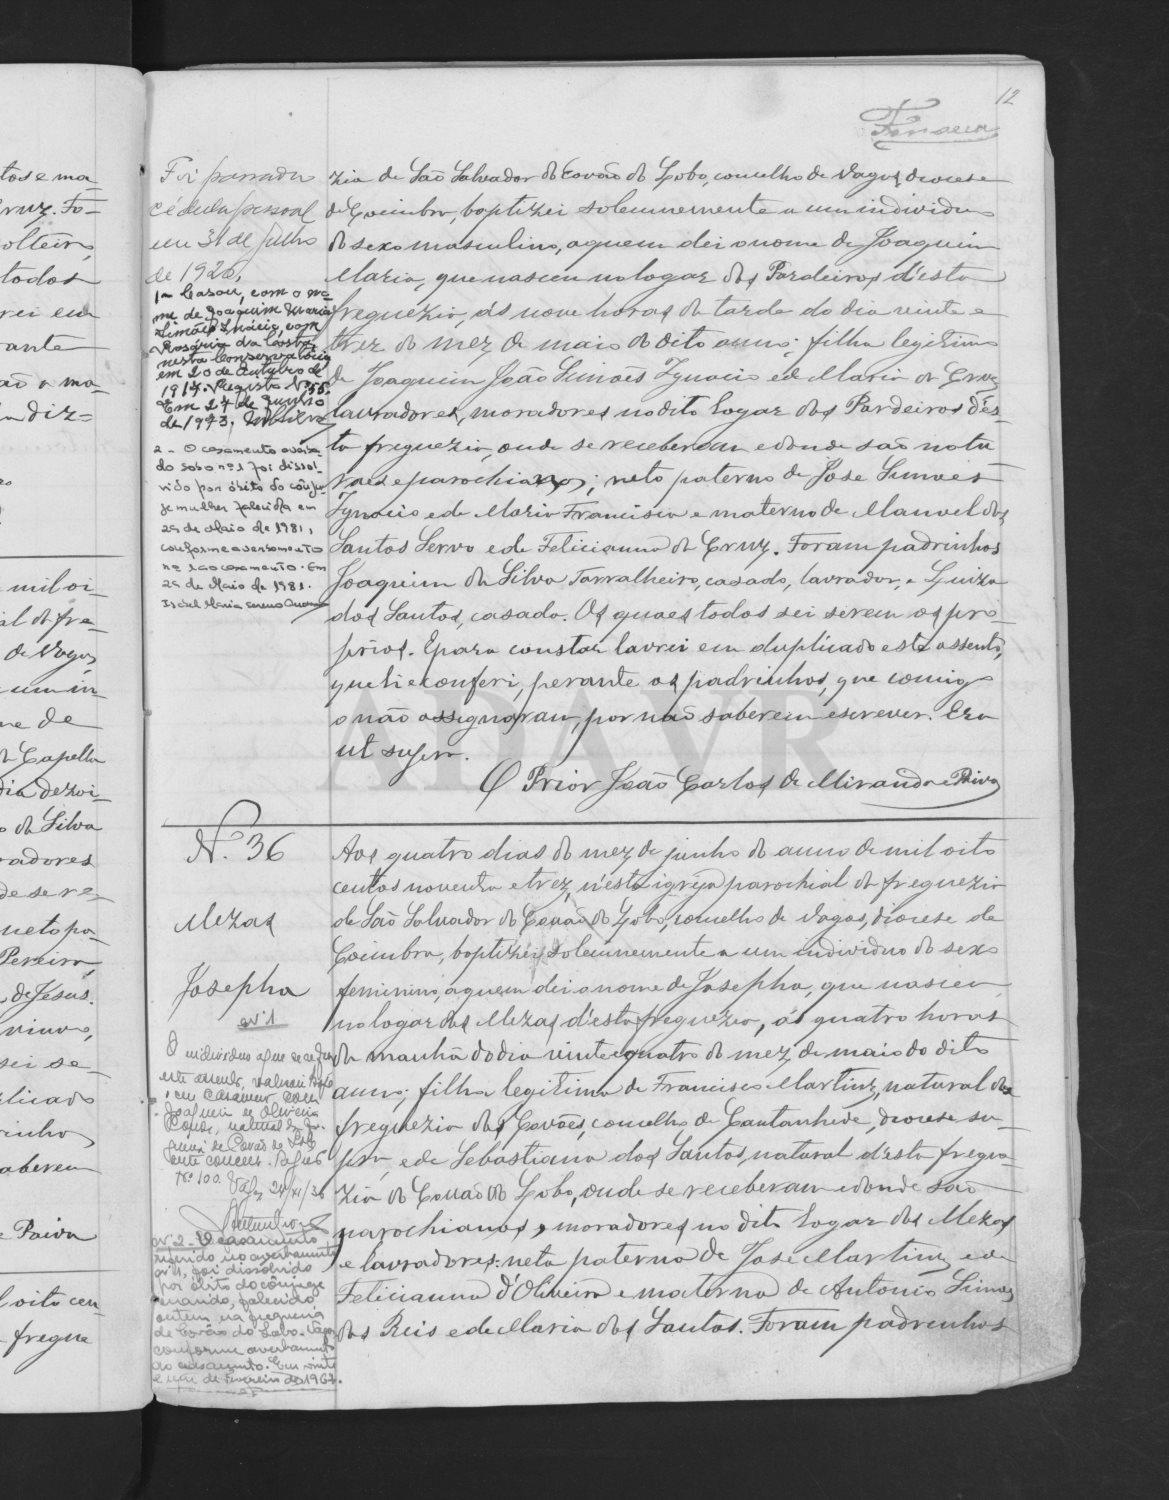 12
Fonseca
Foi passada
cédula pessoal
em 31 de Julho
de 1920,
1 - Casou, com o no-
me de Joaquim Maria
Simões Inácio, com
Rosária da Costa,
nesta Conservatória
em 20 de outubro de
1917. Registo Nº 55.
Em 27 de Junho
de 1973.
2 - O casamento averba-
do sob o nº 1 foi dissol-
vido por óbito do cônju-
je mulher falecida em
29 de Maio de 1981,
conforme averbamento
nº 1 ao casamento. Em
29 de Maio de 1981.
zia de São Salvador do Covão do Lobo, concelho de Vagos, diocese
de Coimbra, baptizei solemnemente a um individuo
do sexo masculino, a quem dei o nome de Joaquim
Maria, que nasceu no logar dos Pardeiros d'esta
freguezia, ás nove horas da tarde do dia vinte e
trez do mez de maio do dito anno; filho legitimo
de Joaquim João Simoes Ignacio e de Maria da Cruz
lavradores, moradores no dito logar dos Pardeiros d'es-
ta freguezia, onde se receberam e donde são natu
raes e parochianos; neto paterno de José Simoes
Ignacio e de Maria Francisca e materno de Manoel dos
Santos Servo e de Felicianna da Cruz. Foram padrinhos
Joaquim da Silva Tarralheiro, casado, lavrador, e Luiza
dos Santos, casada. Os quaes todos sei serem os pro-
prios. E para constar lavrei em duplicado este assento,
que li e conferi, perante os padrinhos, que comigo
o não assignaram, por não saberem escrever. Era
ut supra.
O Prior João Carlos de Miranda e Paiva
ADAVR
N. 36
Mezas
Josepha
nº 1
O individuo a que se refere
este assento, realizou hoje
o seu casamento com
Joaquim de Oliveira
natural da fre-
guesia de Covão do Lobo
deste concelho. Registo
Nº 100. Vagos 24/XI/36
nº 2 - O casamento
referido no averbamento
nº 1, foi dissolvido
por óbito do cônjuge
marido, falecido
ontem na freguesia
de Covão do Lobo. Vagos
conforme averbamento
ao casamento. Em vinte
e um de Fevereiro de 1967.
Aos quatro dias do mez de junho do anno de mil oito
centos noventa e trez, n'esta igreja parochial da freguezia
de São Salvador do Covão do Lobo, concelho de Vagos, diocese de
Coimbra, baptizei solemnemente a um individuo do sexo
feminino, a quem dei o nome de Josepha, que nasceu
no logar das Mezas d'esta freguezia, ás quatro horas
da manhã do dia vinte e quatro do mez de maio do dito
anno; filha legitima de Francisco Martins, natural da
freguezia dos Covões, concelho de Cantanhede, diocese su-
pra, e de Sebastiana dos Santos, natural d'esta fregue-
zia do Covão do Lobo, onde se receberam e donde são
parochianos, moradores no dito logar das Mezas
e lavradores: neta paterna de José Martins e de
Felicianna d'Oliveira e materna de Antonio Simoes
dos Reis e de Maria dos Santos. Foram padrinhos